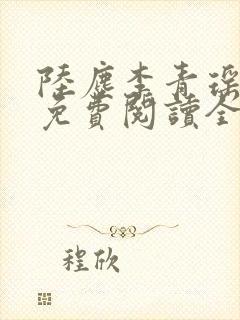 陸塵李青瑤
免費閱讀全
程欣